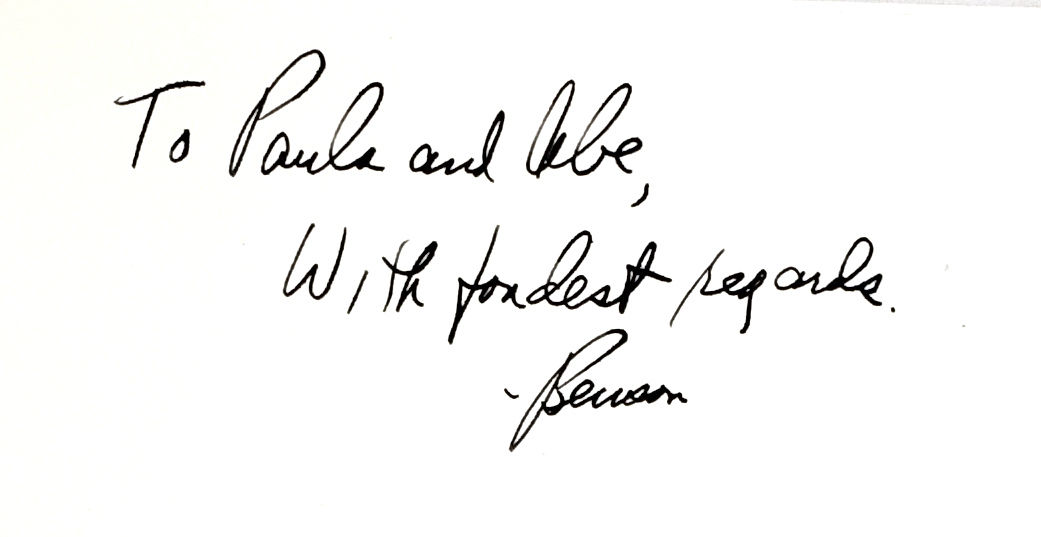 To Paula and Abe,
With fondest regards.
-Benson